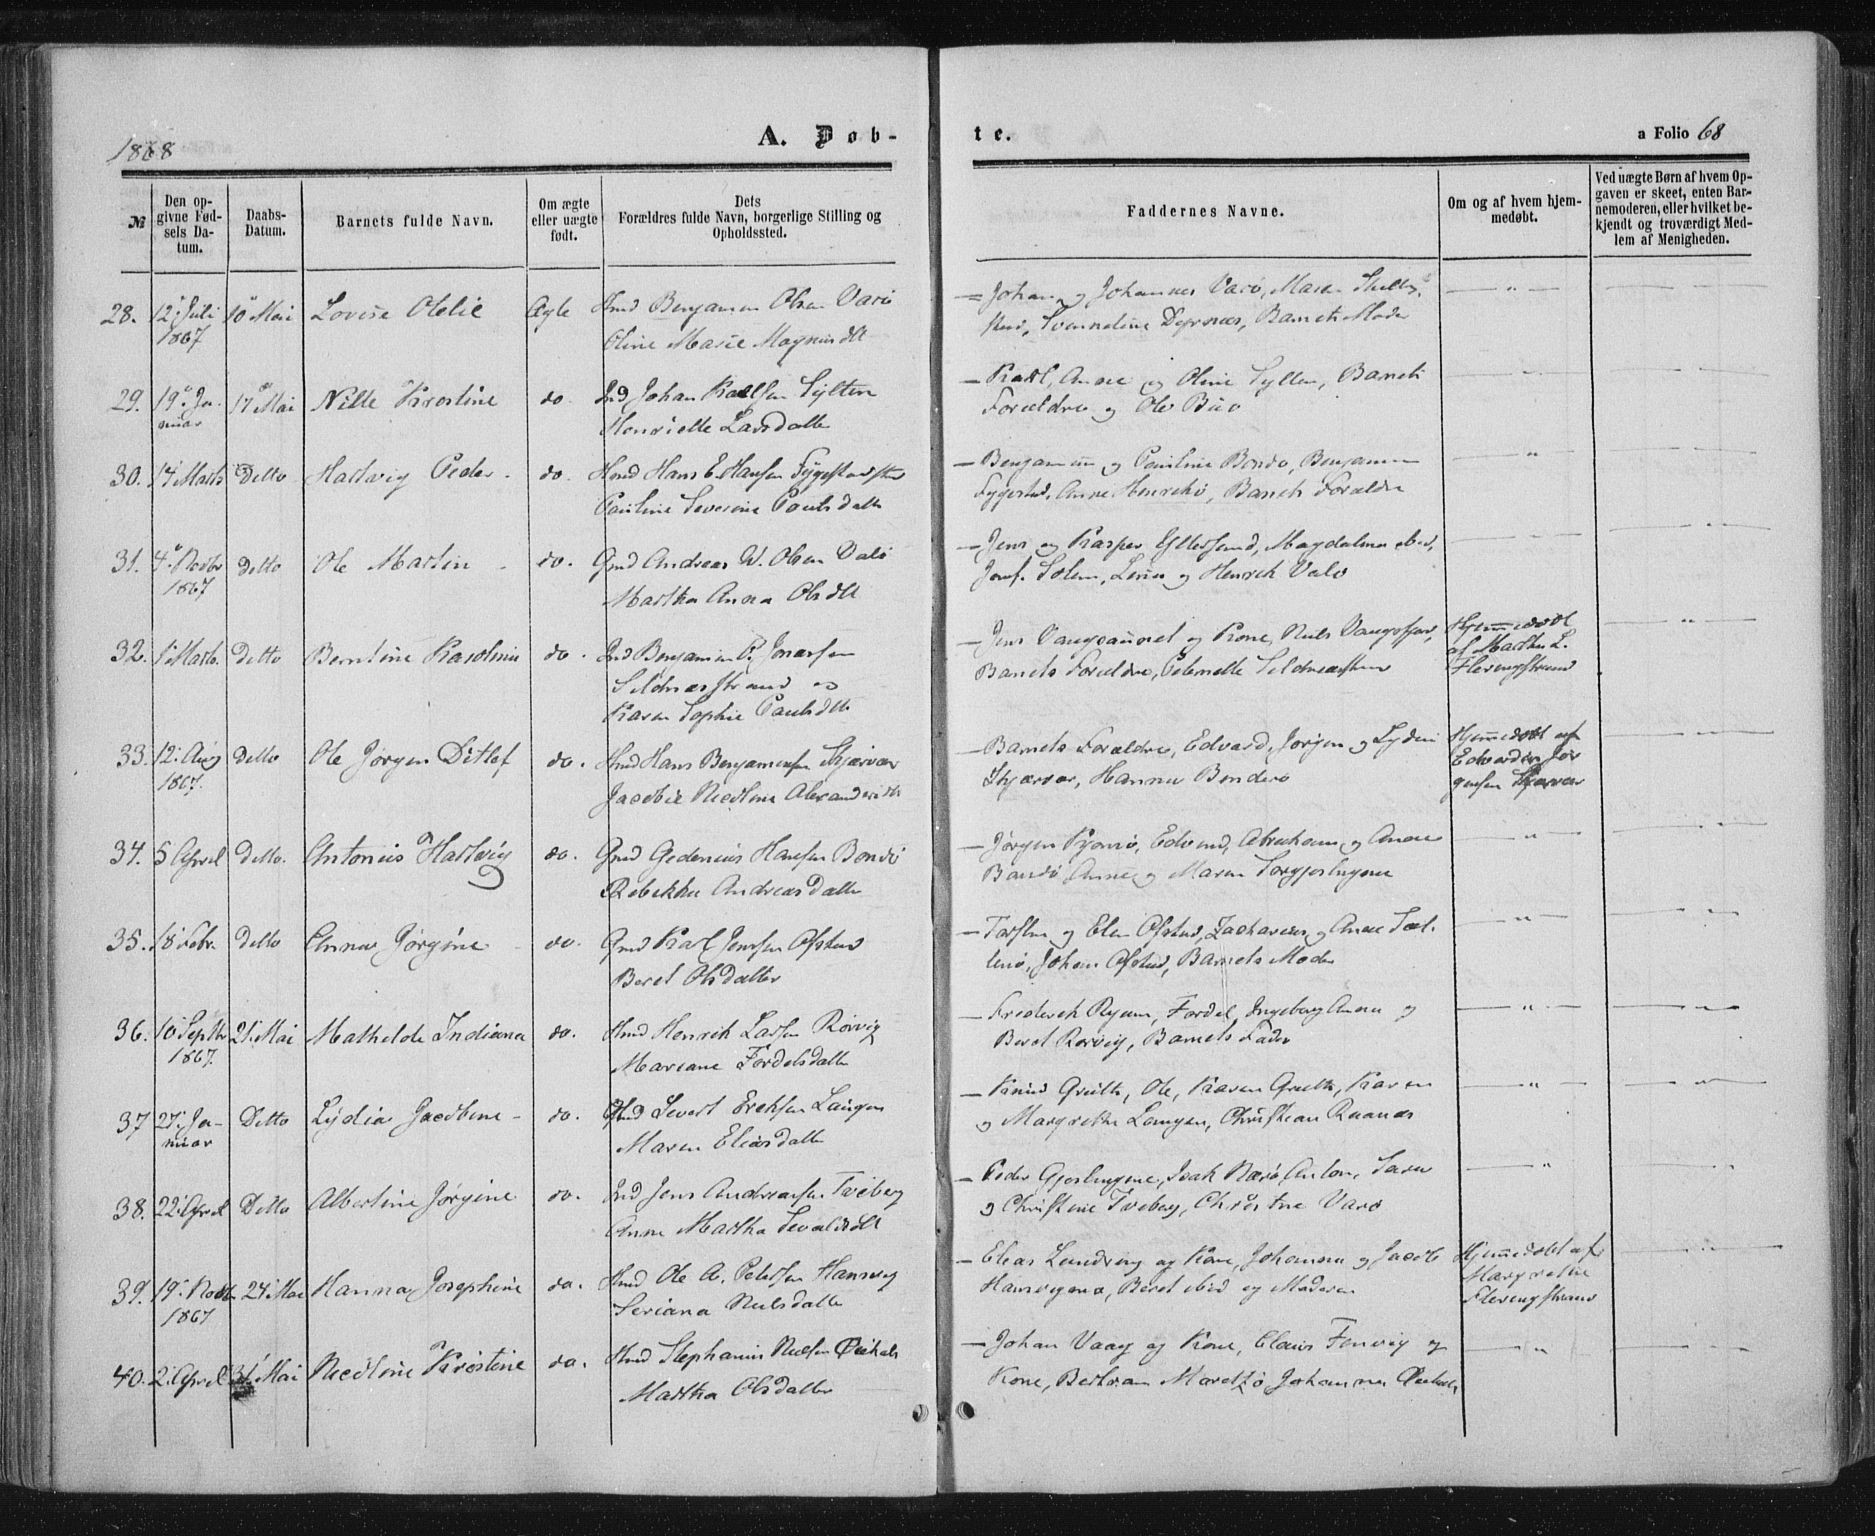 1868
A. Døb-
te.
a Folio 68
№
Den op-
givne Fød-
sels Da-
tum.
Daabs-
Datum.
Barnets fulde Navn.
Om ægte
eller uægte
født.
Dets
Forældres fulde Navn, borgerlige Stilling og
Opholdssted.
Faddernes Navne.
Om og af hvem hjem-
medøbt.
Ved uægte Børn af hvem Op-
gaven er skeet, enten Bar-
nemoderen, eller hvilket be-
kjendt og troværdigt Med-
lem af Menigheden.
28. 12 Juli 10 Mai Lovise Olelie Ægte Hmd Benjamin Olsen Varø
1867 Oline Marie Magnusdtt
— Johan og Johannes Varø, Maren
Dyrnæs, Barnets Moder
29. 19 Ja- 17 Mai Nille Kirstine do. Ind Johan Karlsen Sylten
nuar Henriette Larsdatter
— Karl, Anne og Oline Sylten, Barnets
Forældre og Ole Buø
30. 14 Marts Detto Hartvig Peder do. Hmd Hans E. Hansen
Pauline Severine Paulsdatter
— Benjamin og Pauline Bondø, Benjamin
Fygestad, Anne Henrikø, Barnets Forældre
31. 4 Novbr Detto Ole Martin do. Gmd Andreas W. Olsen Valø
1867 Martha Anna Olsdtt
— Jens og Kasper, Magdalena ibid,
Josef Solem, og Henrik Valø
32. 1 Marts. Detto Berntine Karoline do. Ind Benjamin P. Jonassen
Sildnæsstrand og
Karen Sophie Paulsdtt
— Jens Vaagsaunet og Kone, Nils
Barnets Forældre, Peternelle
Hjemmedøbt
af Marthe L.
Flerengstrand
33. 12 Aug Detto Ole Jørgen Ditlef do. Hmd Hans Benjaminsen Skjærvær
1867. Jacobie Nicoline
— Barnets Forældre, Edvard, Jørgen og
Skjærvær, Hanna Bondø
Hjemmedøbt af
Edvard Jør
gensen Skjærvær
34. 5 April Detto. Antonius Hartvig do. Gmd Gedenius Hansen Bondø
Rebekka Andreasdatter
— Jørgen, Edvard, Abraham og Anne
Bondø, Anne og Maren
35. 18 Febr. Detto Anna Jørgine do. Gmd Karl Jensen Ofstad
Beret Olsdatter
— Torsten og Elen Ofstad, Zacharias og Anne
Johan Ofstad, Barnets Moder
36. 10 Septbr 21 Mai Mathilde Indiana do. Hmd Henrik Larsen Rørvig
1867. Mariane Fordelsdatter
— Frederik Ryum, Fordel, Ingeborg Anna og
Beret Rørvig, Barnets Fader
37 27 Ja- Detto Lydia Jacobine do. Hmd Sivert Eriksen Laugen
nuar Maren Eliasdatter
— Knud, Ole, Karen, Karen
og Margrethe Laugen, Christian Ranæs
38. 22 April Detto Albertine Jørgine do. Ind Jens Andreassen Treberg
Anne Martha Sevaldsdtt
— Peder Gjeslingene, Isak Nærø, Anton, Sara
og Christine Treberg, Christine Varø
39. 19 Novbr 24 Mai Hanna Josephine do. Hmd Ole A. Petersen Hansvig
1867 Seriana Nilsdatter
— Elias Lundring og Kone, Johanna og Jacob
Beret ibid og Moderen
Hjemmedøbt af
Margrethe
Flerengstrand
40. 2 April 31 Mai Nicoline Kirstine do. Hmd Stephanus Nilsen
Martha Olsdatter
— Johan Vaag og Kone, Claus Finvig og
Kone, Bertram, Johanna